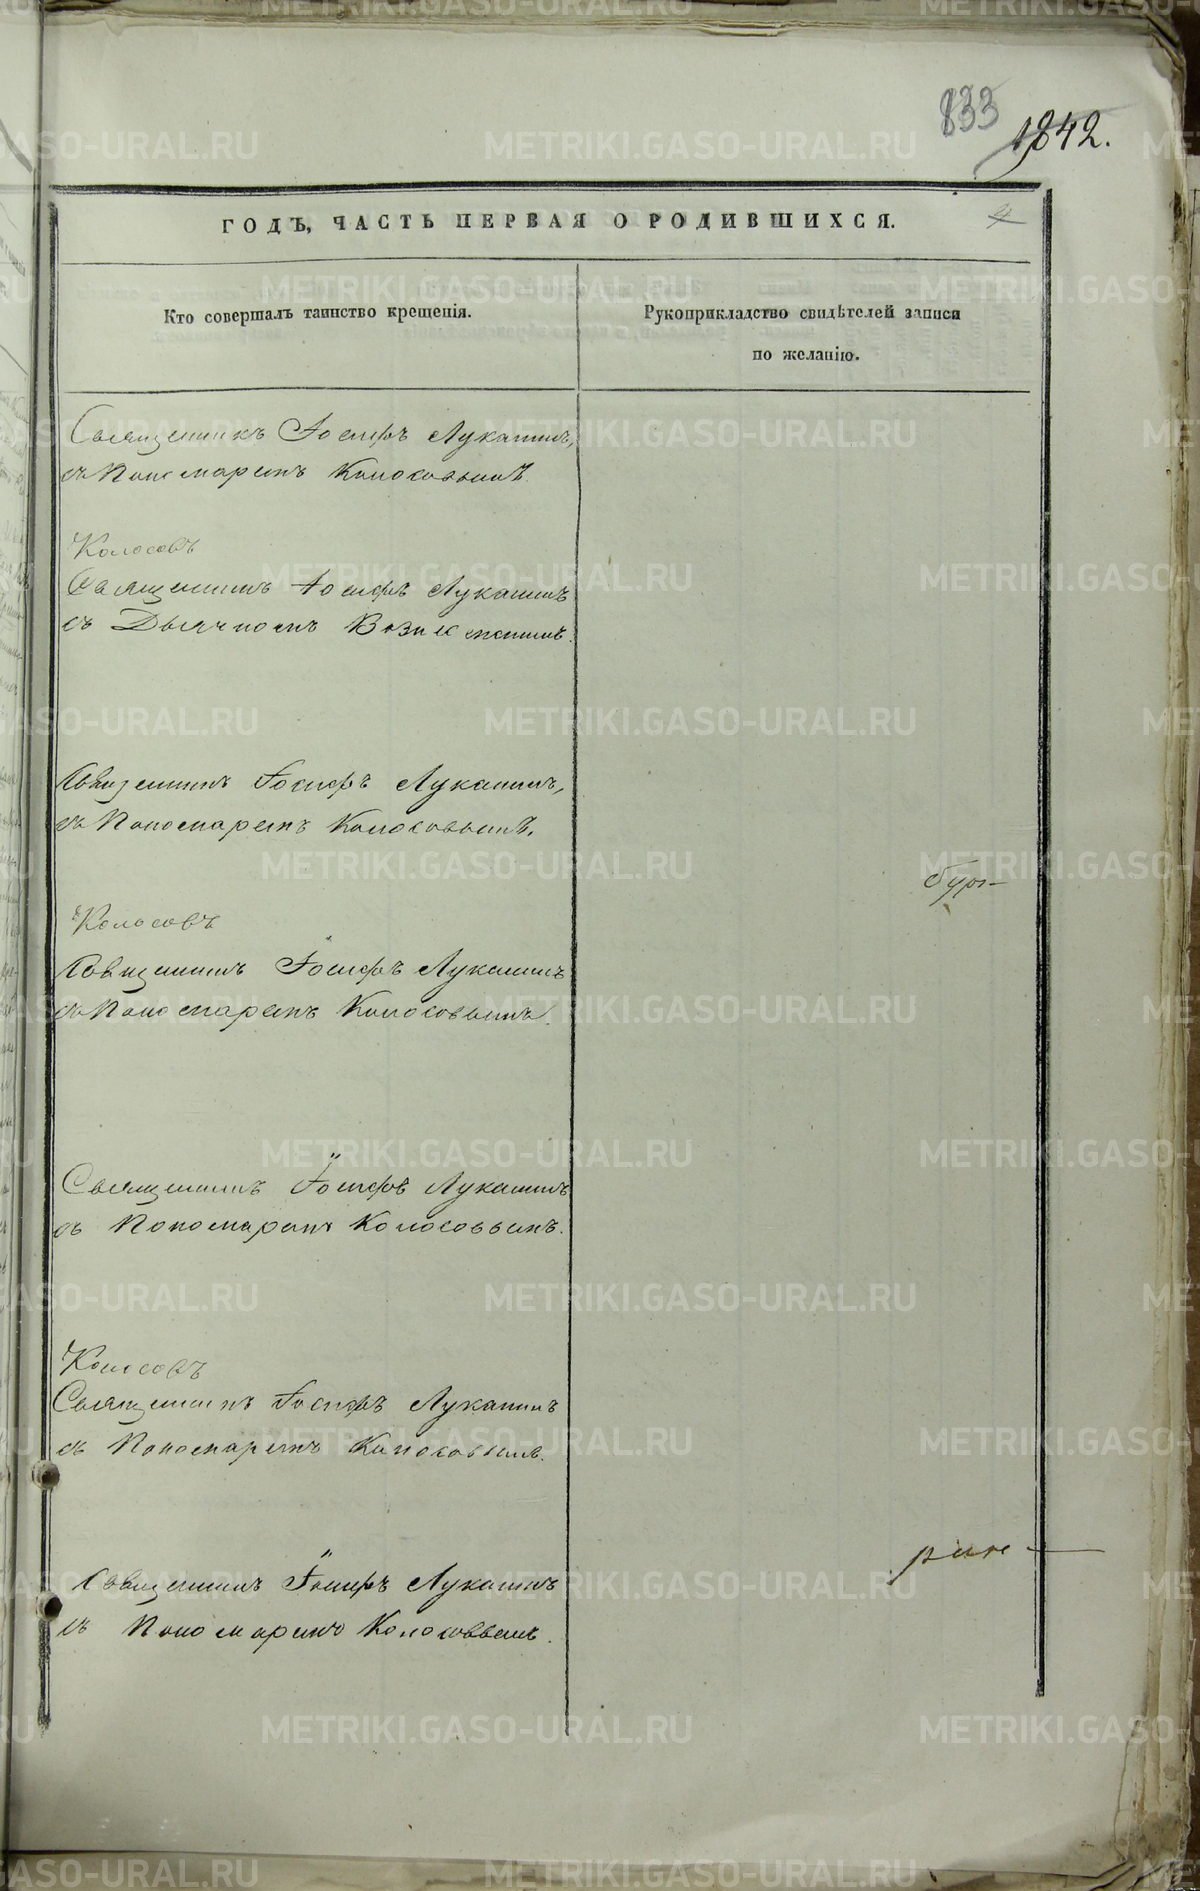 833
1842.
ГОДЪ, ЧАСТЬ ПЕРВАЯ О РОДИВШИХСЯ.
4
Кто совершалъ таинство крещенія.
Рукоприкладство свидѣтелей записи
по желанію.
Священникъ Іосифъ Лукашинъ,
съ Пономаремъ Колосовымъ
Колосовъ
Священникъ Іосифъ Лукашинъ
съ Дьячкомъ
Священникъ Іосифъ Лукашинъ,
съ Пономаремъ Колосовымъ.
Колосовъ
Священникъ Іосифъ Лукашинъ
съ Пономаремъ Колосовымъ.
Священникъ Іосифъ Лукашинъ
съ Пономаремъ Колосовымъ.
Колосовъ
Священникъ Іосифъ Лукашинъ
съ Пономаремъ Колосовымъ.
Священникъ Іосифъ Лукашинъ
съ Пономаремъ Колосовымъ.
METRIKI.GASO-URAL.RU